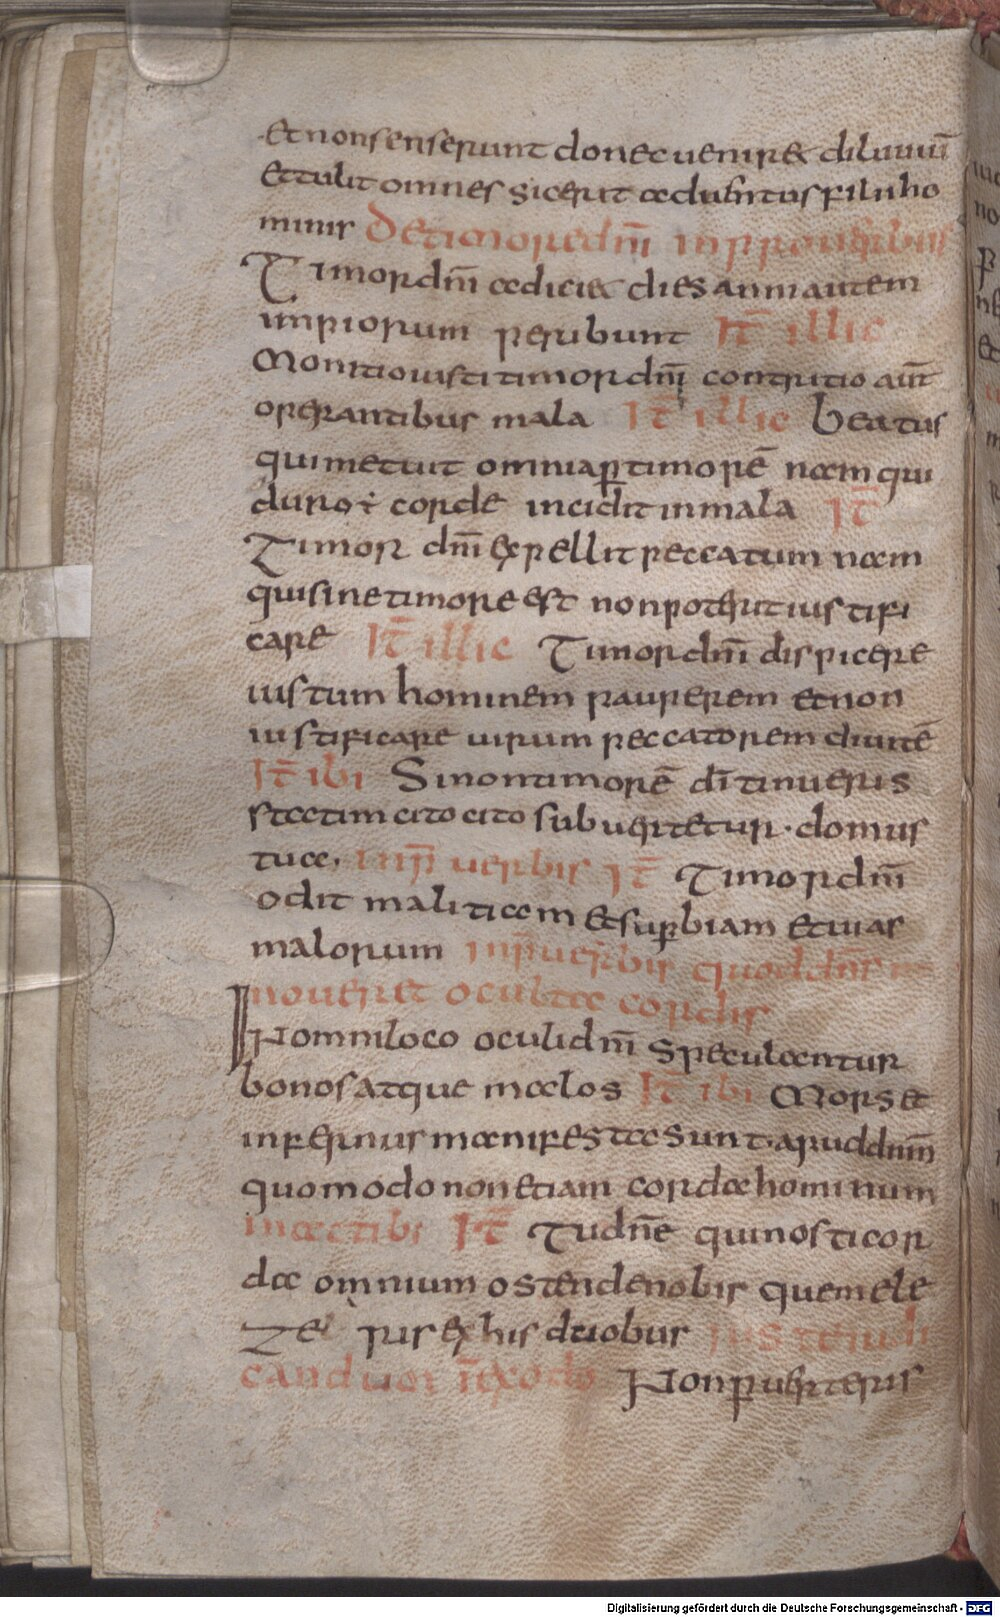 Et non senserunt donec venir& diluuiū
Et tulit omnes sic erit aduentus filii ho
minis De timore dn̄i in prouerbiis
Timor dn̄i adiciet dies anni autem
impiorum peribunt It̄ illic
Monitio iusti timor dn̄i contritio aut̄
operantibus mala It̄ illic beatus
qui metuit omnia p̱ timorē nam qui
duro ÷ corde incidit in mala It̄
Timor dn̄i expellit peccatum nam
qui sine timore est non poterit iustifi
care It̄ illic Timor dn̄i dispicere
iustum hominem pauperem et non
iustificare uirum peccatorem diuitē
It̄ ibi Si non timorē dī tinueris
statim cito cito subuertetur · domus
tua. in p̄uerbiis It̄ Timor dn̄i
odit malitiam et sup̱biam et uias
malorum in p̄uerbiis quod dn̄s
noueret oculta cordis
In omni loco oculi dn̄i speculantur
bonos atque malos It̄ ibi Mors et
infernus manifesta sunt · apud dnm̄
quomodo non etiam corda hominum
in actibs It̄ Tu dnē qui nosti cor
da omnium ostende nobis quem ele
geris ex his duobus iuste iudi
canduor in̄ exodo Non p̱uerteris
Digitalisierung gefördert durch die Deutsche Forschungsgemeinschaft - DFG